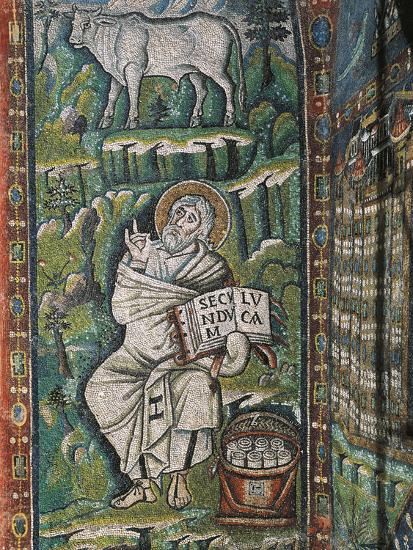 SECV LV
NDV CA
M
H